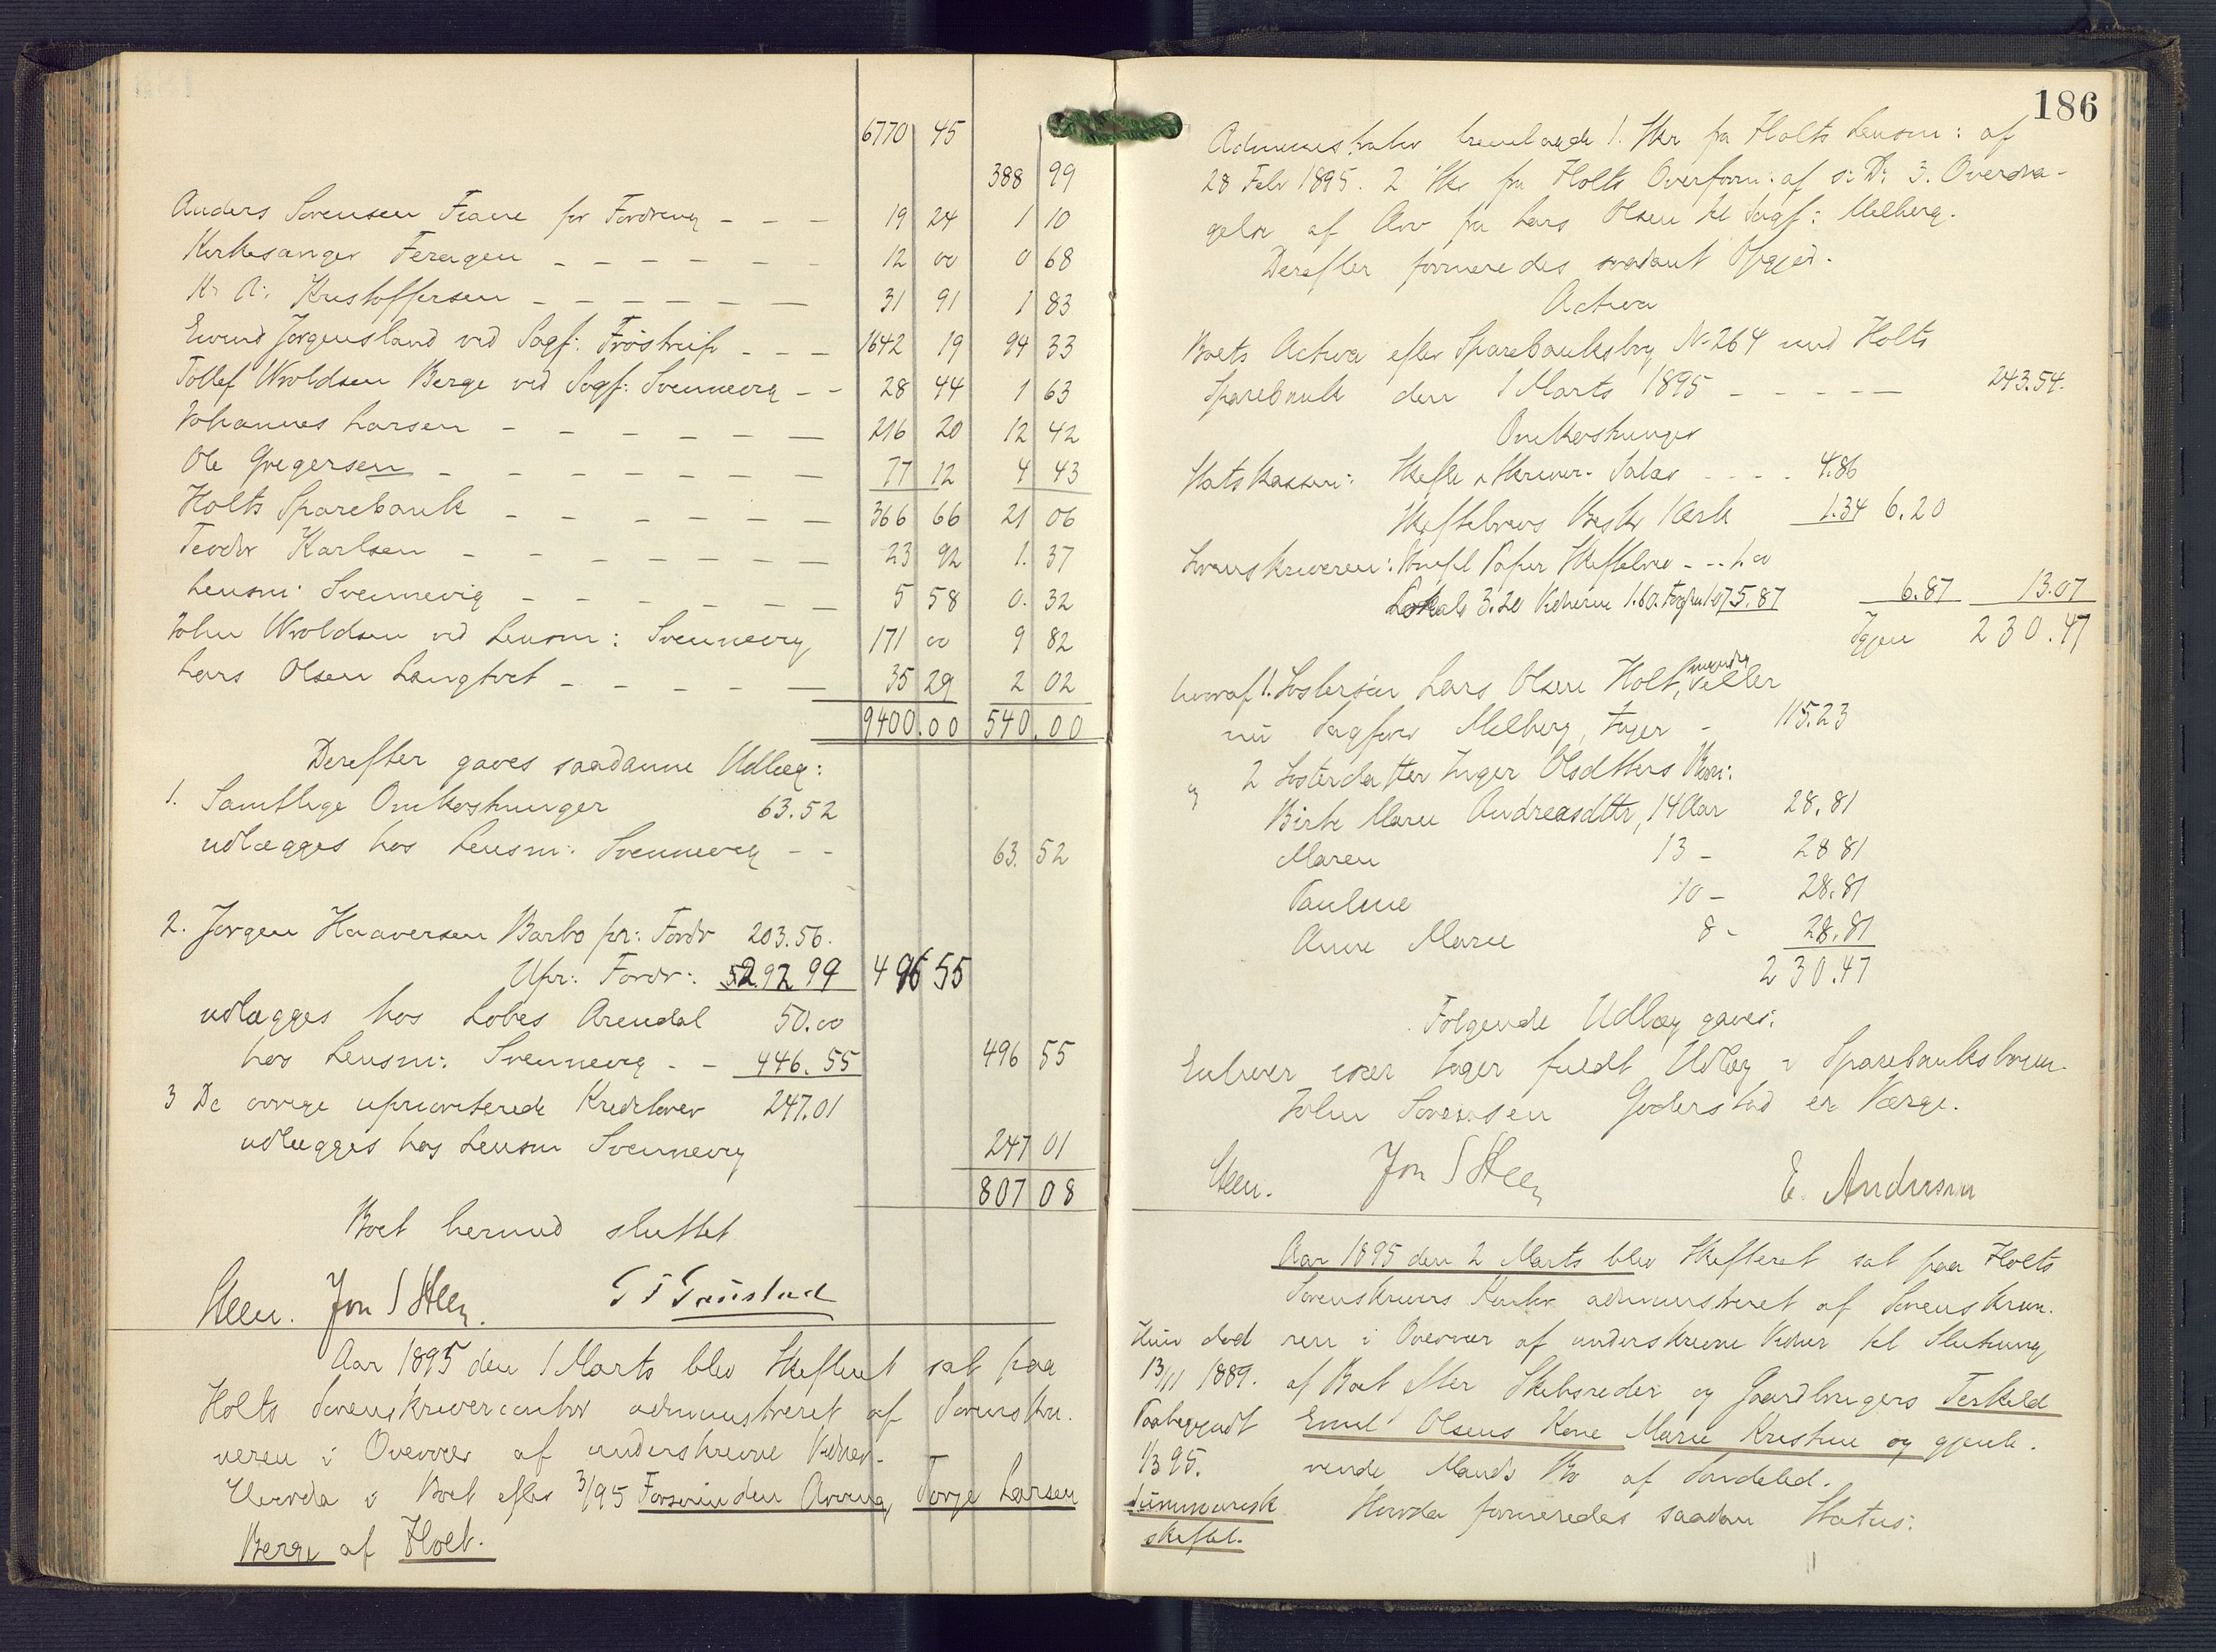 6770 45
388 99
Anders Sørensen Fiane for Fordring - - - 19 24 1 10
Kirkesanger Feragen - - - - - - - 12 00 0 68
K. A. Kristoffersen - - - - - - - 31 91 1 83
Eivind Jørgensland ved Sagf: Frøstrup - - - 1642 19 94 33
Tollef Woldsen Berge ved Sagf: Svennevig - - 28 44 1 63
Johannes Larsen - - - - - - - 216 20 12 42
Ole Gregersen - - - - - - - 77 12 4 43
Holts Sparebank - - - - - - - 366 66 21 06
Teodor Karlsen - - - - - - - 23 92 1. 37
Lensm: Svennevig - - - - - - 5 58 0. 32
John Woldsen ved Lensm: Svennevig 171 00 9 82
Lars Olsen Langtvet - - - - - 35 29 2 02
9400.00 540.00
Derefter gaves saadanne Udlæg:
1. Samtlige Omkostninger 63.52
udlægges hos Lensm: Svennevig - - 63. 52
2. Jørgen Haaversen Barbo pr: Fordr 203.56.
Upr: Fordr: 292 99 496 55
udlægges hos Lobes Arendal 50.00
hos Lensm: Svennevig - - 446. 55 496 55
3 De øvrige uprioriterede Kreditorer 247.01
udlægges hos Lensm Svennevig 247 01
807 08
Boet hermed sluttet
Steen. Jon S Steen. T T Graustad
Aar 1895 den 1 Marts blev Skifteret sat paa
Holts Sorenskrivercontor administreret af Sorenskri-
veren i Overvær af underskrevne Vidner.
Hvorda i Boet efter 3/95 Forsvunden Arving Torje Larsen
Berge af Holt.
186
Administrator fremlagde 1. Skr fra Holts Lensm: af
28 Febr 1895. 2 Skr fra Holts Overform: af s: D: 3. Overdra-
gelse af Arv fra Lars Olsen til Sagf: Melberg.
Derefter formeredes saadant Opgjør.
Activa
Boets Activa efter Sparebanksbog No 264 med Holts
Sparebank den 1 Marts 1895 - - - - - 243.54.
Omkostninger
Statskassen: Skifte & Skriver-Salær - - - . 4.86
Skiftebrevs Beskr Kærk 1.34 6.20
Sorenskriveren: Stempl Papir Skiftebrev - - - 1.00
Lokale 3.20 Vidnerne 1.60. 1.07 5.87 6.87 13.07
Igjen 230.47
hvoraf 1. Søstersøn Lars Olsen Holt, myndig, eller
nu Sagfører Melberg, tager - 115.23
og 2 Søsterdatter Inger Olsdtters Børn:
Birte Maren Andreasdttr, 14 Aar 28.81
Maren 13 - 28 81
Pauline 10 - 28.81
Anne Marie 8 - 28.81
230.47
Følgende Udlæg gaves:
Enhver især tager fuldt Udlæg i Sparebanksbogen.
John Sørensen Goderstad er Værge.
Steen. Jon S Steen E. Andersen
Aar 1895 den 2 Marts blev Skifteret sat paa Holts
Sorenskrivers Kontor administreret af Sorenskriv-
ren i Overvær af underskrevne Vidner til Slutning
af Boet efter Skibsreder og Gaardbrugers Terkild
Emil Olsens Kone Maren Kristine og gjenle-
vende Mands Bo af Søndeled.
Hun død
13/11 1889.
Paabegyndt
1/3 95.
Summarisk
skiftet.
Hvorda formeredes saadan Status: